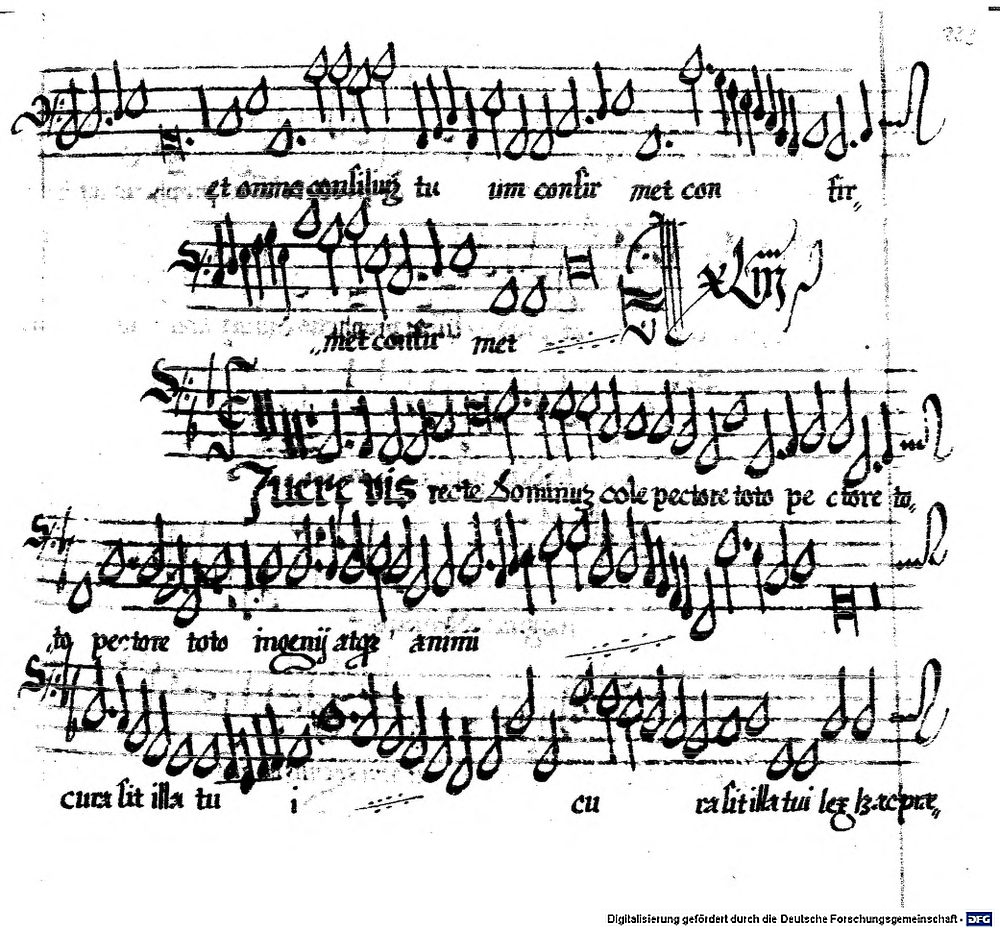 et omne consiliuȝ tu um confir met con fir„
„met confir met
xLiii
Juere vis recte Dominuȝ cole pectore toto pe ctore to„
„to pectore toto ingenij atqȝ animi
cura sit illa tu i cu ra sit illa tui lex hæc præ„
Digitalisierung gefördert durch die Deutsche Forschungsgemeinschaft - DFG